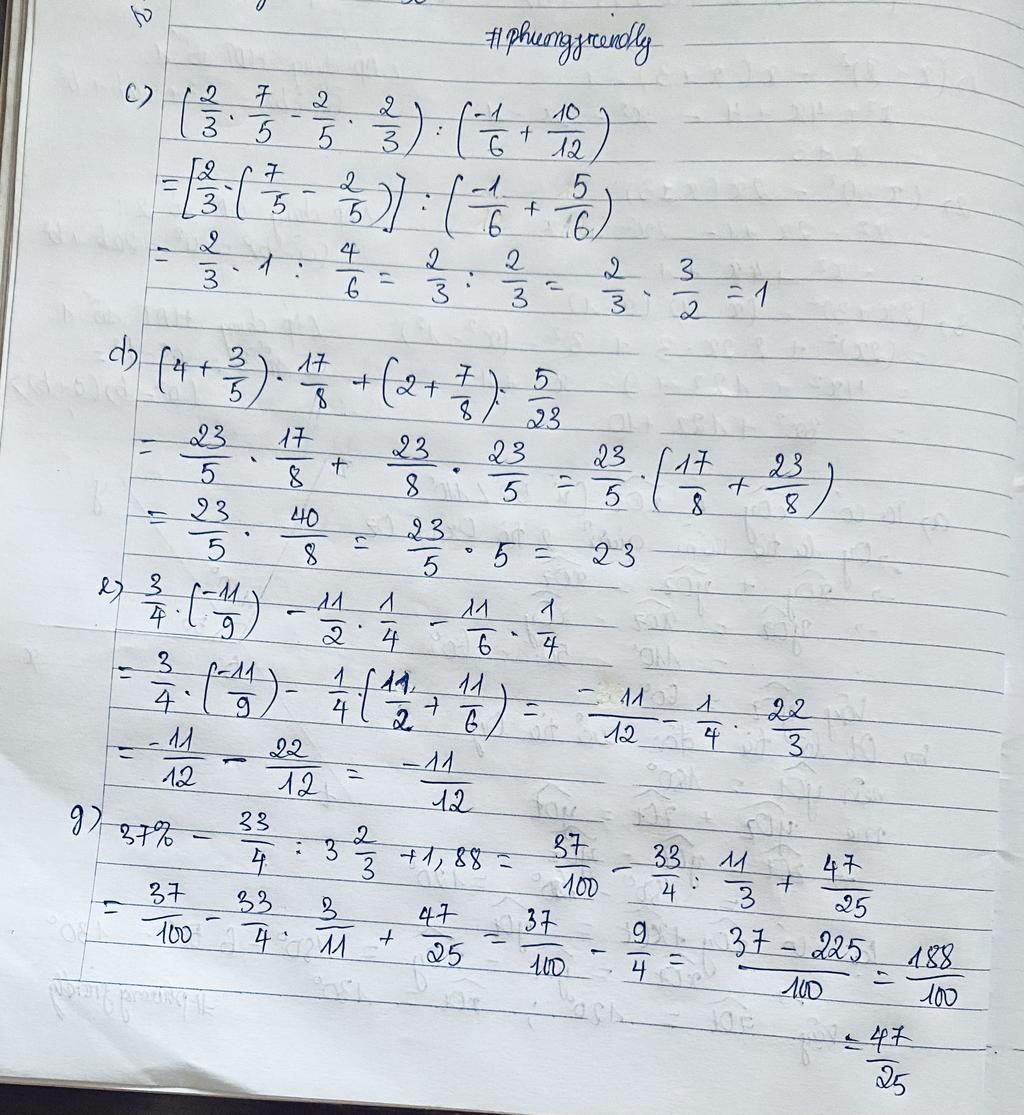 #phuongfriendly
c) (2/3 . 7/5 - 2/5 . 2/3) : (-1/6 + 10/12)
= [2/3 . (7/5 - 2/5)] : (-1/6 + 5/6)
= 2/3 . 1 : 4/6 = 2/3 : 2/3 = 2/3 . 3/2 = 1
d) (4 + 3/5) . 17/8 + (2 + 7/8) : 5/23
= 23/5 . 17/8 + 23/8 . 23/5 = 23/5 . (17/8 + 23/8)
= 23/5 . 40/8 = 23/5 . 5 = 23
e) 3/4 . (-11/9) - 11/2 . 1/4 - 11/6 . 1/4
= 3/4 . (-11/9) - 1/4 . (11/2 + 11/6) = -11/12 - 1/4 . 22/3
= -11/12 - 22/12 = -11/12
g) 37% - 33/4 : 3 2/3 + 1,88 = 37/100 - 33/4 : 11/3 + 47/25
= 37/100 - 33/4 . 3/11 + 47/25 = 37/100 - 9/4 = 37 - 225/100 = 188/100
= 47/25